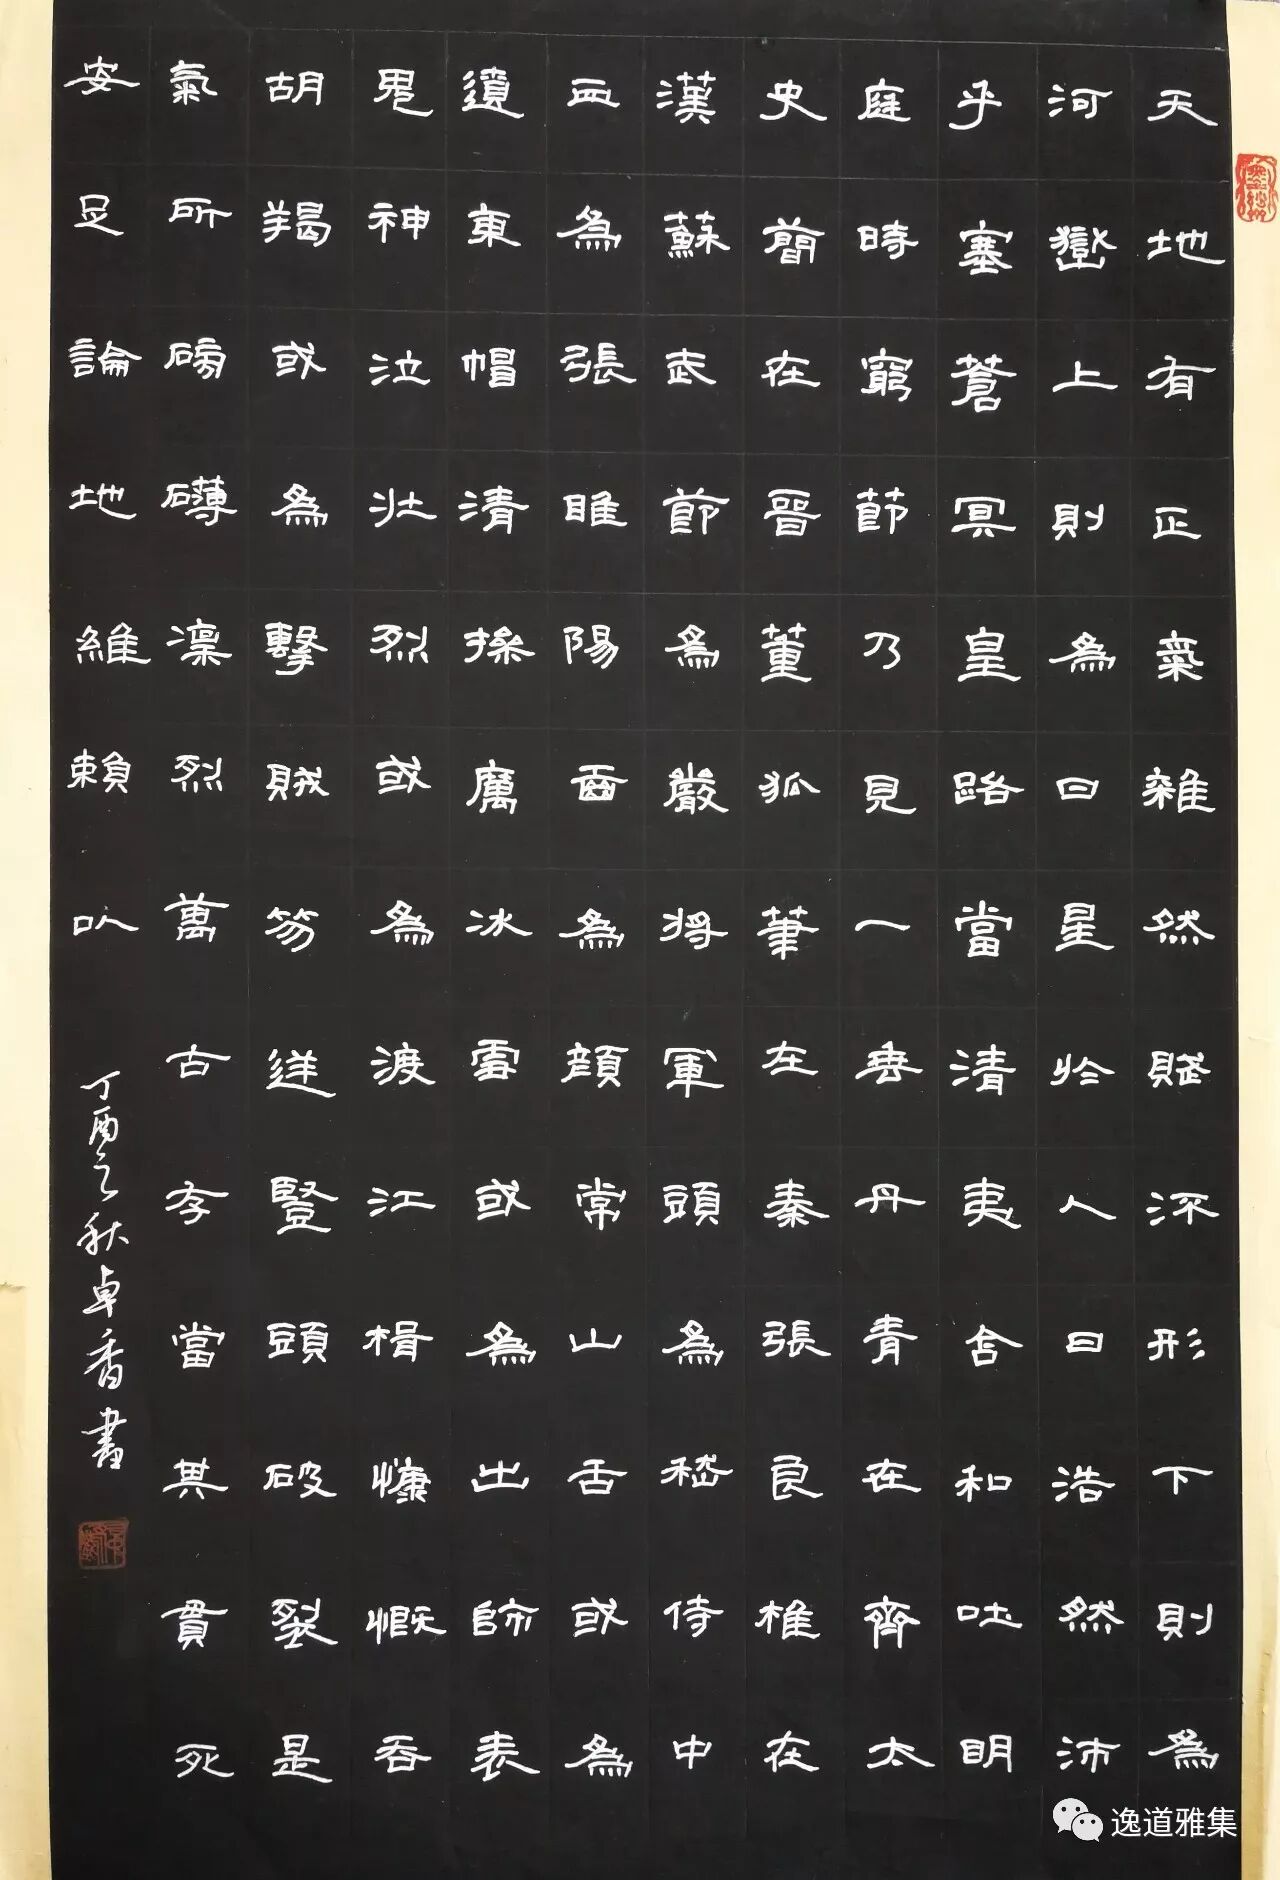 天地有正氣雜然賦流形下則為
河嶽上則為日星於人曰浩然沛
乎塞蒼冥皇路當清夷含和吐明
庭時窮節乃見一垂丹青在齊太
史簡在晉董狐筆在秦張良椎在
漢蘇武節為嚴將軍頭為嵇侍中
血為張睢陽齒為顏常山舌或為
遼東帽清操厲冰雪或為出師表
鬼神泣壯烈或為渡江楫慷慨吞
胡羯或為擊賊笏逆豎頭破裂是
氣所磅礴凜烈萬古存當其貫死
安足論地維賴以
丁酉之秋卓香書
逸道雅集